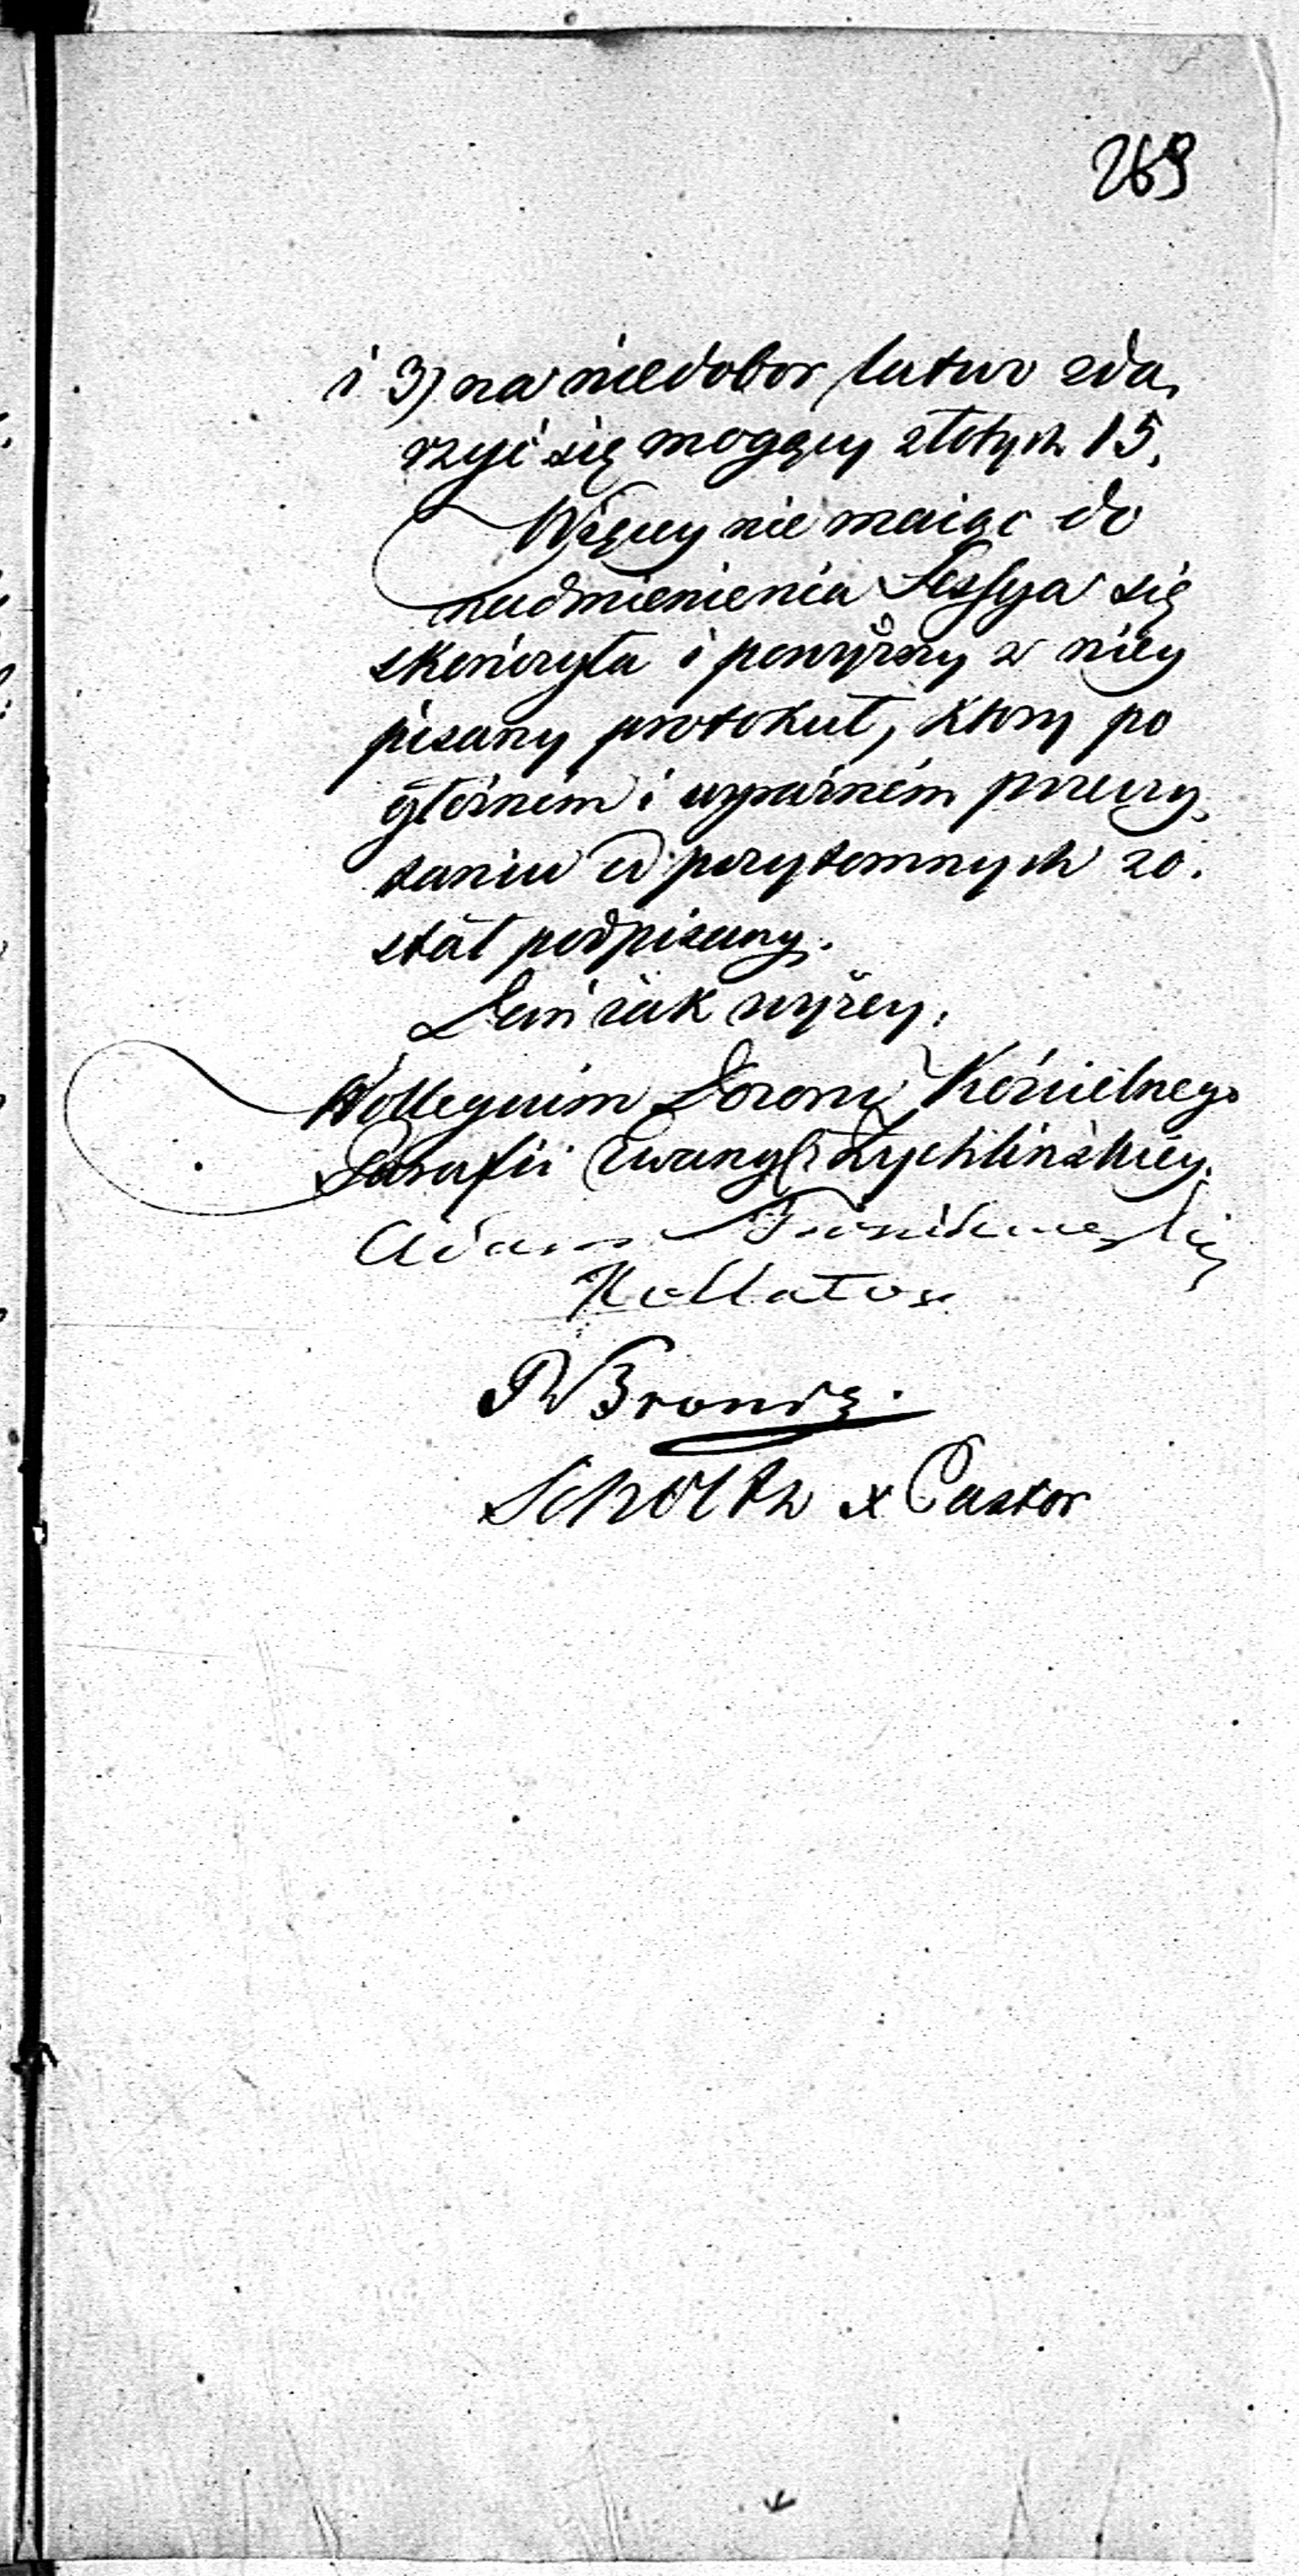 269
i 3) na niedobor łatwo zda,
rzyć się mogący złotych 15.
Więcey nie maiąc do
nadmienienia Sessya się
skończyła i powyższy w niey
pisany protokuł, ktory po
głośnem i wyraźnem przeczy,
taniu od przytomnych zo,
stał podpisany.
Dzień iak wyżey.
Kollegium Dozoru Kościelnego
Parafii Ewang: Żychlińskiey.
Adam
Kollator
Bronisz.
Scholtz x Pastor